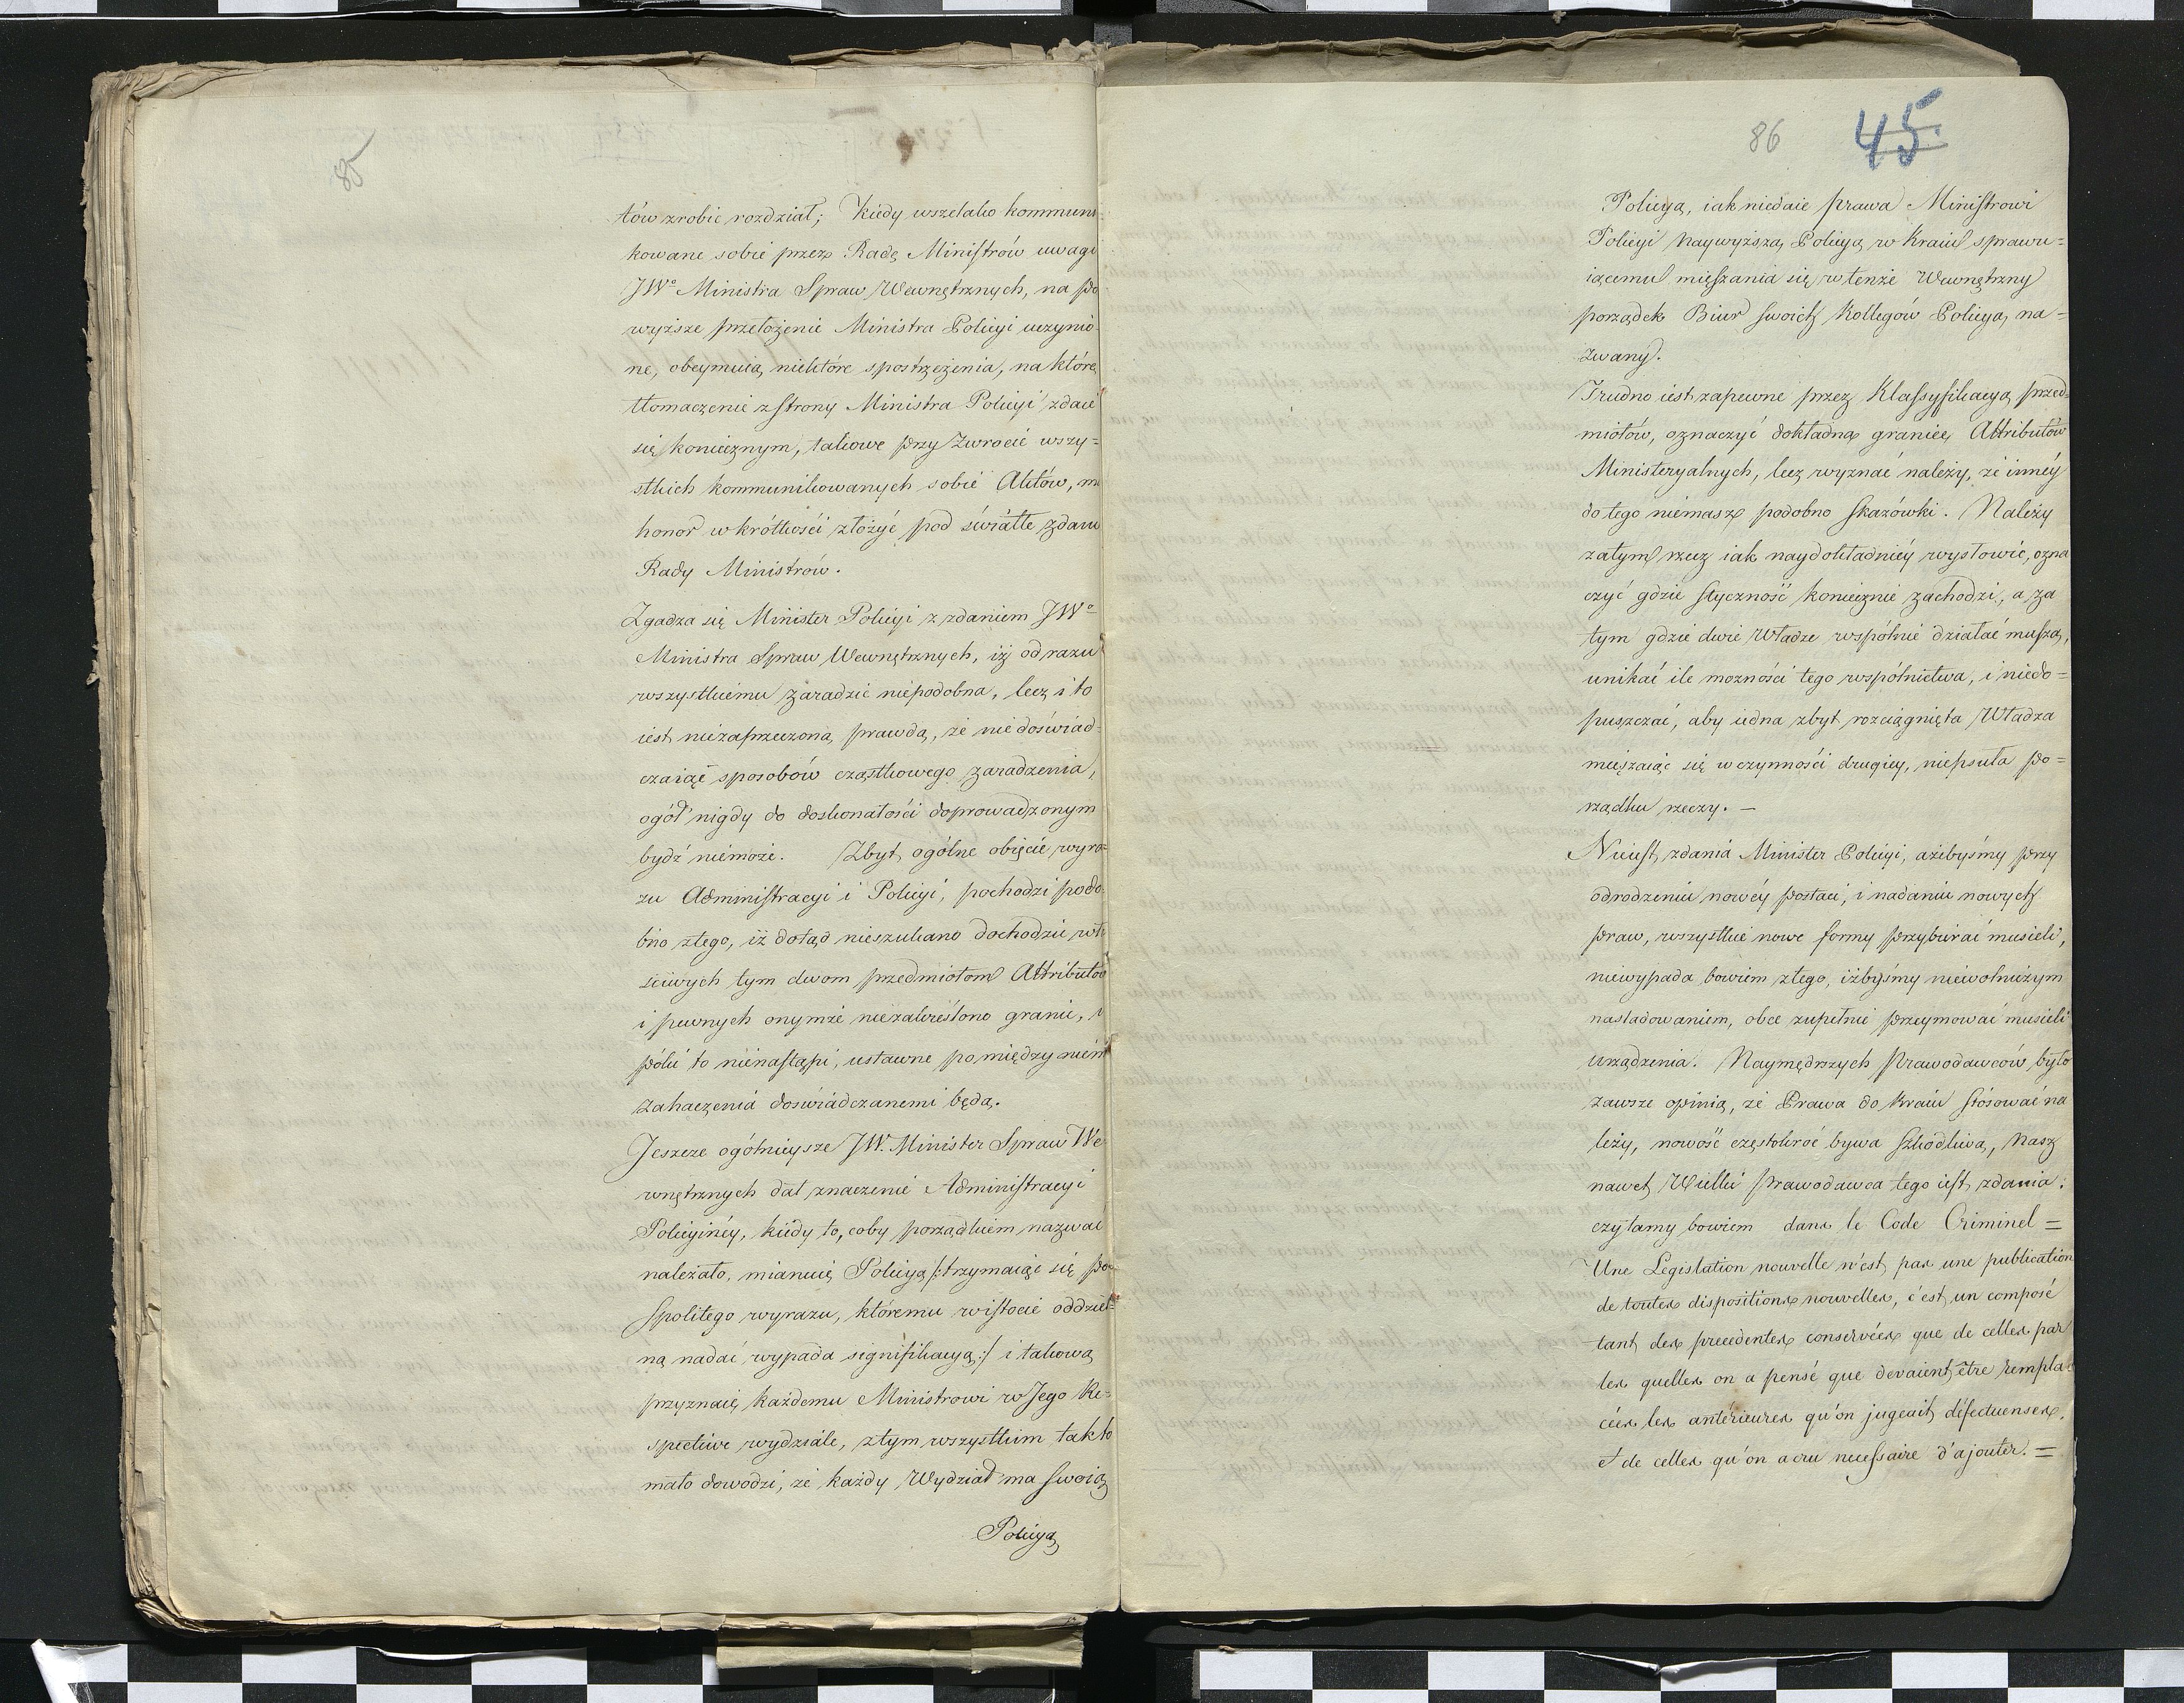 85
tów zrobić rozdział; Kiedy wszelako kommuni
kowane sobie przez Radę Ministrów uwagi
JWo Ministra Spraw Wewnętrznych, na po
wyższe przełożenie Ministra Policyi uczynio
ne, obeymuią niektóre spostrzeżenia, na które
tłomaczenie z strony Ministra Policyi zdaie
się koniecznym, takowe przy zwrocie wszy=
stkich kommunikowanych sobie Aktów, m
honor w krótkości złożyć pod światłe zdani
Rady Ministrów.
Zgadza się Minister Policyi z zdaniem JWo
Ministra Spraw Wewnętrznych, iż od razu
wszystkiemu zaradzić niepodobna, lecz i to
iest niezaprzeczoną prawdą, że nie doświad=
czaiąc sposobów cząstkowego zaradzenia,
ogół nigdy do doskonałości doprowadzonym
bydź niemoże. Zbyt ogólne obięcie wyra=
zu Administracyi i Policyi, pochodzi podo
bno ztego, iż dotąd nieszukano dochodzić wła
ściwych tym dwom przedmiotom Attributów
i pewnych onymże niezakreślono granic, i
póki to nienastąpi, ustawne pomiędzy niem
zahaczenia doświadczanemi będą.
Jeszcze ogólnieysze JW. Minister Spraw We
wnętrznych dał znaczenie Administracyi
Policyinéy, kiedy to, coby porządkiem nazwać
należało, mianuie Policyą /:trzymaiąc się po
spolitego wyrazu, któremu wistocie oddziel=
ną nadać wypada signifikacyą:/ i takową
przyznaie każdemu Ministrowi w Jego Re=
spective wydziale, ztym wszystkim tak to
mało dowodzi, że każdy Wydział ma swoią
Policyą
86 45.
Policyą, iak niedaie prawa Ministrowi
Policyi Naywyższą Policyą w Kraiu sprawu=
iącemu mięszania się w tenże Wewnętrzny
porządek Biur swoich Kollegów Policyą na=
zwany.
Trudno iest zapewne przez Klassyfikacyą przed=
miotów, oznaczyć dokładną granicę Attributów
Ministeryalnych, lecz wyznać należy, że innéy
do tego niemasz podobno skazówki. Należy
zatym rzecz iak naydokładniéy wysłowić, ozna
czyć gdzie styczność koniecznie zachodzi, a za
tym gdzie dwie Władze wspólnie działać muszą,
unikać ile możności tego wspólnictwa, i niedo=
puszczać, aby iedna zbyt rozciągnięta Władza
mięszaiąc się w czynności drugiey, niepsuła po=
rządku rzeczy. —
Nieiest zdania Minister Policyi, ażebyśmy przy
odrodzeniu nowéy postaci, i nadaniu nowych
praw, wszystkie nowe formy przybierać musieli,
niewypada bowiem ztego, iżbyśmy niewolniczym
naśladowaniem, obce zupełnie przeymować musieli
urządzenia. Naymędrszych Prawodawców było
zawsze opinią, że Prawa do Kraiu stósować na
leży, nowość częstokroć bywa szkodliwą, Nasz
nawet Wielki Prawodawca tego iest zdania:
czytamy bowiem dans le Code Criminel=
Une Legislation nouvelle n'est pas une publication
de toutes dispositions nouvelles, c'est un composé
tant des precedentes conservées que de celles par
les quelles on a pensé que devaient être rempla=
cées les antérieures qu'on jugeait défectueuses,
et de celles qu'on a cru necessaire d'ajouter.=